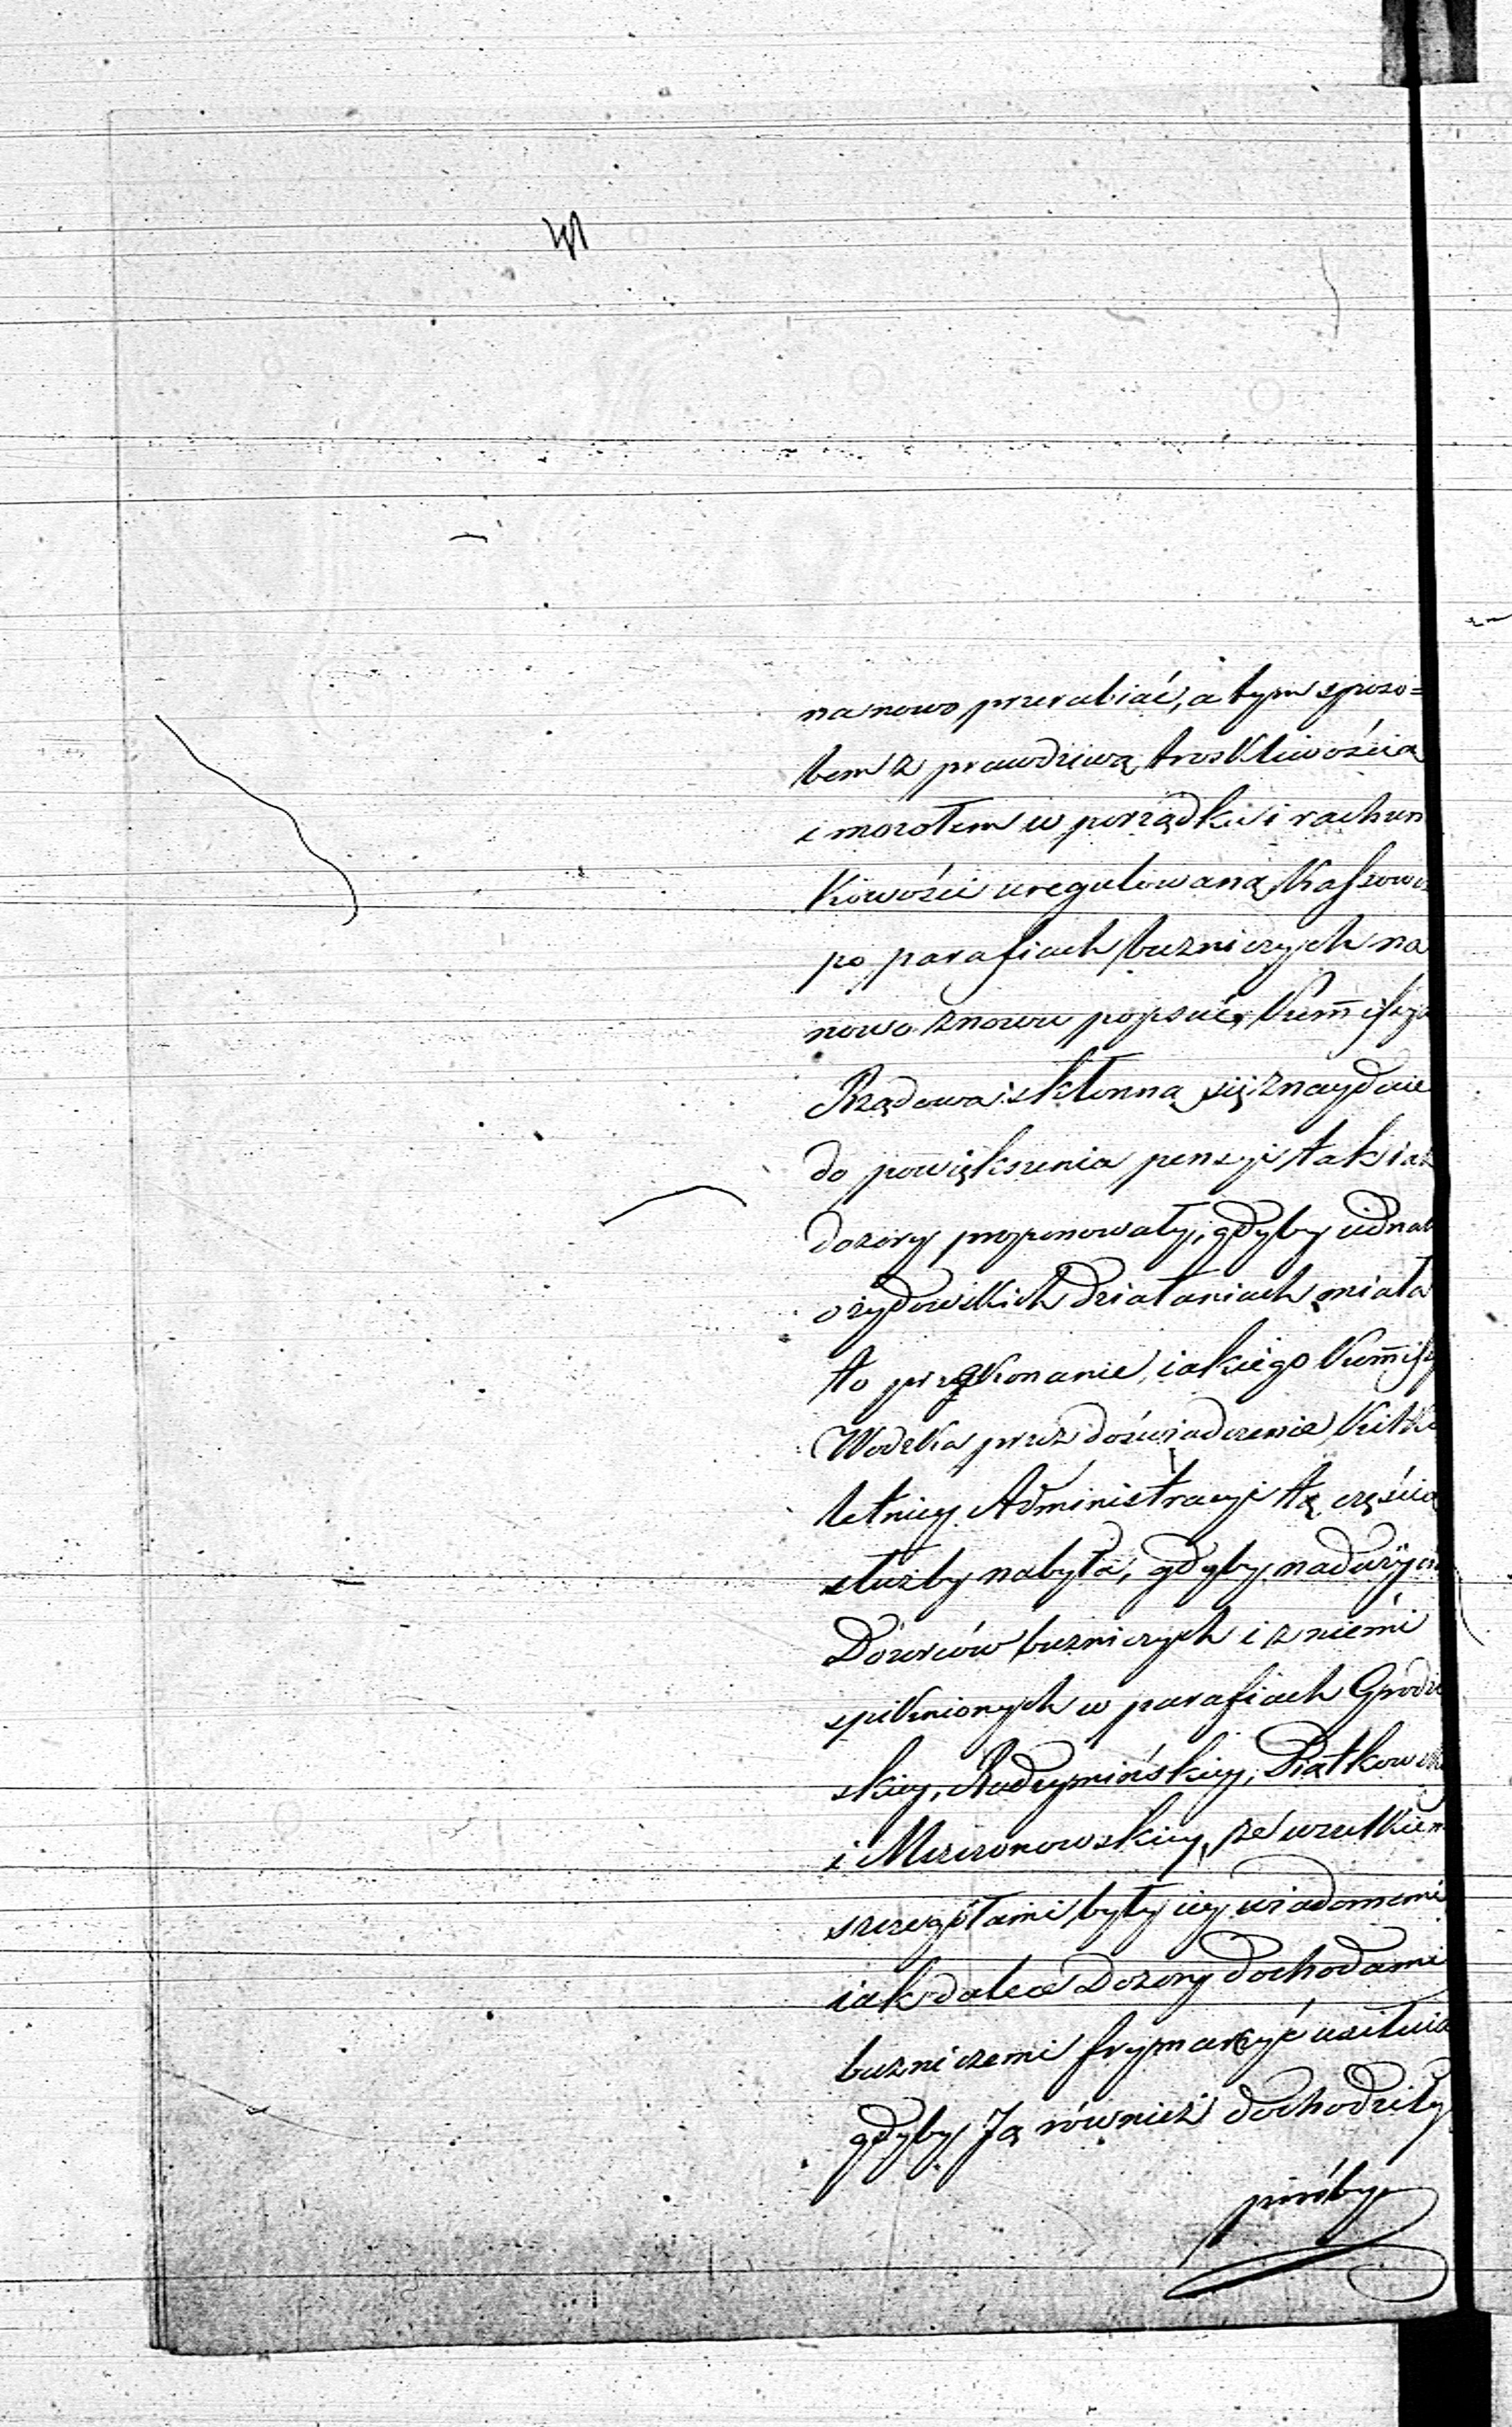 na nowo przerabiać, a tym sposo=
bem z prawdziwą troskliwością
i mozołem w porządku i rachun
kowości uregulowaną Kassowo
po parafiach bużniczych na
nowo znowu popsuć, Kommissya
Rządowa skłonną się znayduie
do powiększenia pensyi tak iak
dozory proponowały, gdyby iednak
o żydowskich działaniach miała
to przekonanie, iakiego Kommissy
Wodzka przez doświadczenie kilko
letniey Administracyi tą częścią
służby nabyła, gdyby nadużycia
Dozorców bużniczych i z niemi
spólnionych w parafiach Grodzi
skiey, Radzymińskiey, Piątkowski
i Mszczonowskiey, ze wszelkiem
szczegółami były iey wiadomemi
iak dalece Dozory dochodami
bużniczemi frymarczyć usiłuią
gdyby Ją również dochodziły
prośby